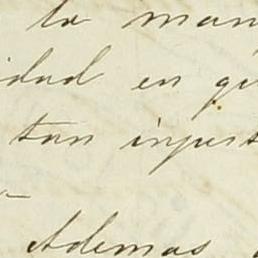 la man
idad en qu
tan injust
Ademas